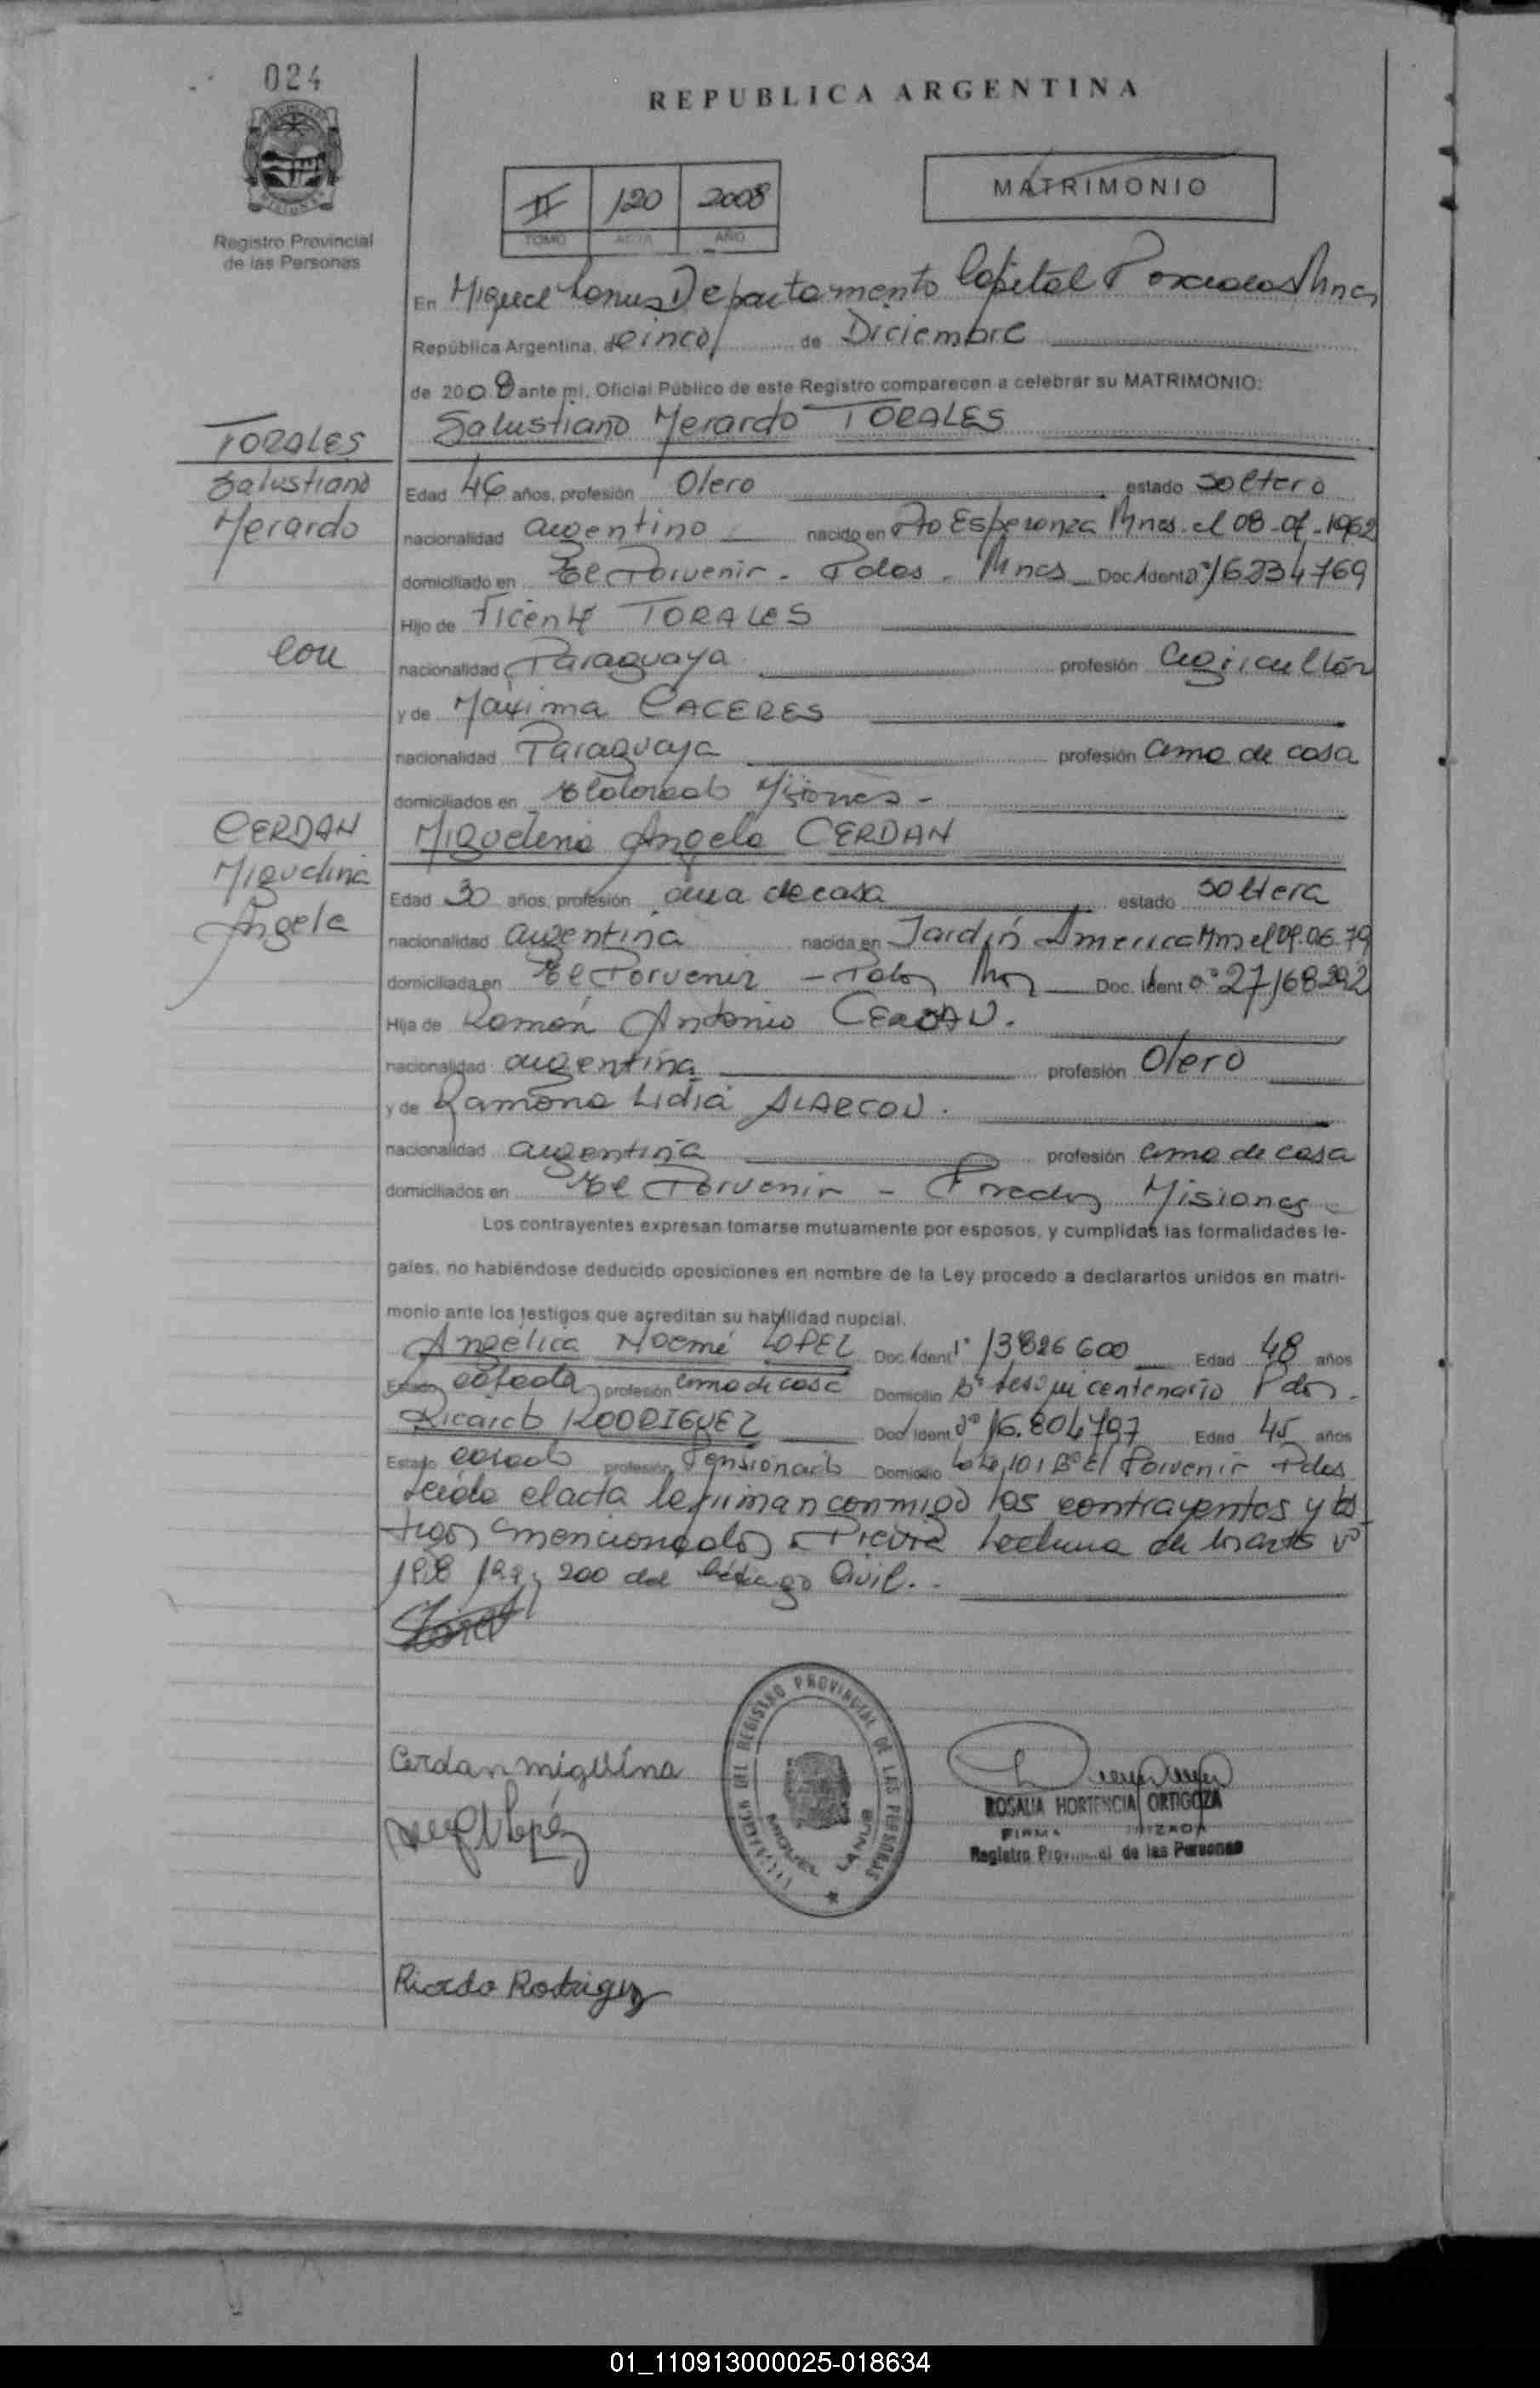 024
REPUBLICA ARGENTINA
MATRIMONIO
II 120 2008
TOMO ACTA AÑO
Registro Provincial
de las Personas
En Miguel Lanus Departamento Capital Posadas Mnes
República Argentina, a cinco de Diciembre
de 2008 ante mi, Oficial Público de este Registro comparecen a celebrar su MATRIMONIO:
Salustiano Merardo TORALES
TORALES
Salustiano
Merardo
con
CERDAN
Miguelina
Angela
Edad 46 años, profesión Olero estado soltero
nacionalidad argentino nacido en Pto Esperanza Mnes. el 08-07-1962
domiciliado en El Porvenir - Pdas. Mnes Doc. Ident. nº 16234769
Hijo de Vicente TORALES
nacionalidad Paraguaya profesión agricultor
y de Máxima CACERES
nacionalidad Paraguaya profesión ama de casa
domiciliados en Eldorado Misiones -
Miguelina Angela CERDAN
Edad 30 años, profesión ama de casa estado soltera
nacionalidad argentina nacida en Jardín America Mnes el 09.06.79
domiciliada en El Porvenir - Pdas Mnes Doc. Ident nº 27168292
Hija de Ramón Antonio CERDAN.
nacionalidad argentina profesión Olero
y de Ramona Lidia ALARCON.
nacionalidad argentina profesión ama de casa
domiciliados en El Porvenir - Posadas Misiones
Los contrayentes expresan tomarse mutuamente por esposos, y cumplidas las formalidades le-
gales, no habiéndose deducido oposiciones en nombre de la Ley procedo a declararlos unidos en matri-
monio ante los testigos que acreditan su habilidad nupcial.
Angélica Noemé LOPEZ Doc. Ident. 13826600 Edad 48 años
Estado casada profesión ama de casa Domicilio Bº Sesquicentenario Pdas.
Ricardo RODRIGUEZ Doc. Ident. nº 16.804797 Edad 45 años
Estado casado profesión Pensionado Domicilio Lote 101 Bº El Porvenir Pdas
Leida el acta la firman conmigo los contrayentes y tes
tigos mencionados Previa Lectura de los arts nº
198 199 y 200 del Código Civil.
Cerdan miguelina
Ricardo Rodriguez
REGISTRO PROVINCIAL DE LAS PERSONAS
MIGUEL LANUS
ROSALIA HORTENCIA ORTIGOZA
FIRMA
Registro Provincial de las Personas
01_110913000025-018634